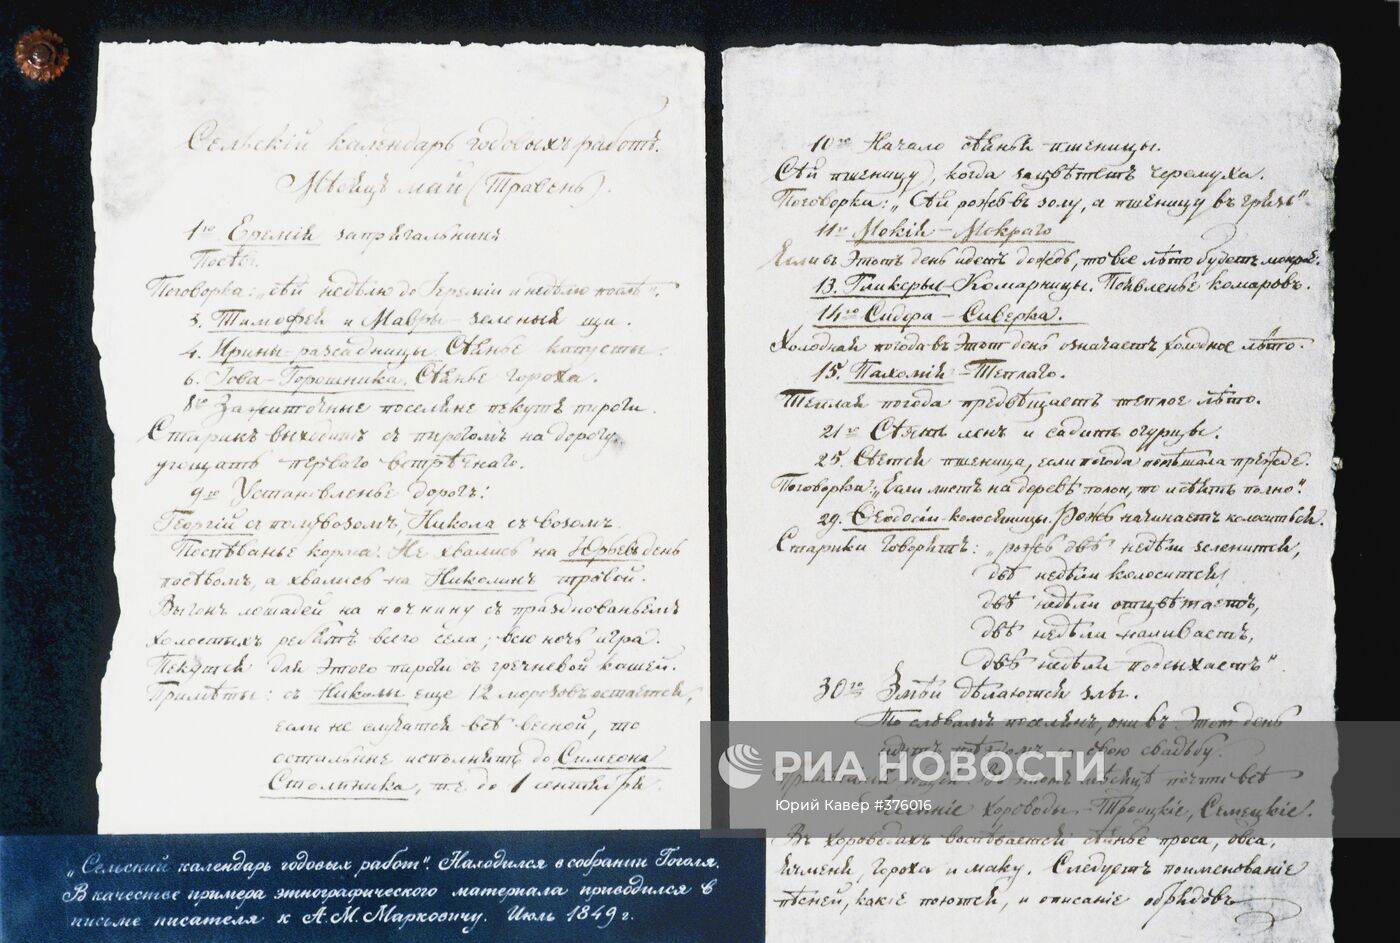 Сельскій календарь годовыхъ работъ.
Мѣсяцъ май (Травень).
1го Еремій запрягальникъ
Посѣвъ.
Поговорка: „сѣй недѣлю до Еремія и недѣлю послѣ".
3. Тимофей и Мавры – зеленый щи.
4. Ирины – разсадницы. Сѣянье капусты.
6. Іова – Горошника. Сѣянье гороха.
8го Зажиточные поселяне пекутъ пироги.
Старикъ выходитъ съ пирогомъ на дорогу,
угощать перваго встрѣчнаго.
9го Установленье дорогъ:
Георгій съ полувозомъ, Никола съ возомъ.
Поспѣванье корма. Не хвались на Юрьевъ день
посѣвомъ, а хвались на Николинъ травой.
Выгонъ лошадей на ночнину съ празднованьемъ
холостыхъ ребятъ всего села; всю ночь игра.
Пекутся для этого пироги съ гречневой кашей.
Примѣты: съ Николы еще 12 морозовъ остается,
если не случатся всѣ весной, то
остальные исполнятся до Симеона
Столпника, т. е. до 1 сентября.
10го Начало сѣянья пшеницы.
Сѣй пшеницу, когда зацвѣтетъ черемуха.
Поговорка: „Сѣй рожь въ золу, а пшеницу въ грязь"
11го Мокій – Мокраго
Если въ этотъ день идетъ дождь, то все лѣто будетъ мокрое.
13. Гликеры – Комарницы. Появленье комаровъ.
14го Сидора – Сиверка.
Холодная погода въ этотъ день означаетъ холодное лѣто.
15. Пахомій – Теплаго.
Теплая погода предвѣщаетъ теплое лѣто.
21го Сѣютъ ленъ и садятъ огурцы.
25. Сѣется пшеница, если погода помѣшала прежде.
Поговорка: „Если листъ на деревѣ полон, то и сѣять полно".
29. Ѳеодосіи – колосяницы. Рожь начинаетъ колоситься.
Старики говорятъ: „рожь двѣ недѣли зеленится,
двѣ недѣли колосится,
двѣ недѣли отцвѣтаетъ,
двѣ недѣли наливаетъ,
двѣ недѣли подсыхаетъ"
30го Змѣи дѣлаются злы.
По словамъ поселянъ, они въ этотъ день
идутъ поѣздомъ на свою свадьбу.
мѣсяцъ почти всѣ
весенніе хороводы – Троицкіе, Семецкіе.
Въ хороводахъ воспѣвается сѣянье проса, овса,
ячменя, гороха и маку. Слѣдуетъ поименованіе
пѣсней, какіе поются, и описаніе обрядовъ
РИА НОВОСТИ
Юрий Кавер #376016
„Сельский календарь годовых работ". Находился в собрании Гоголя.
В качестве примера этнографического материала приводился в
письме писателя к А. М. Марковичу. Июль 1849 г.